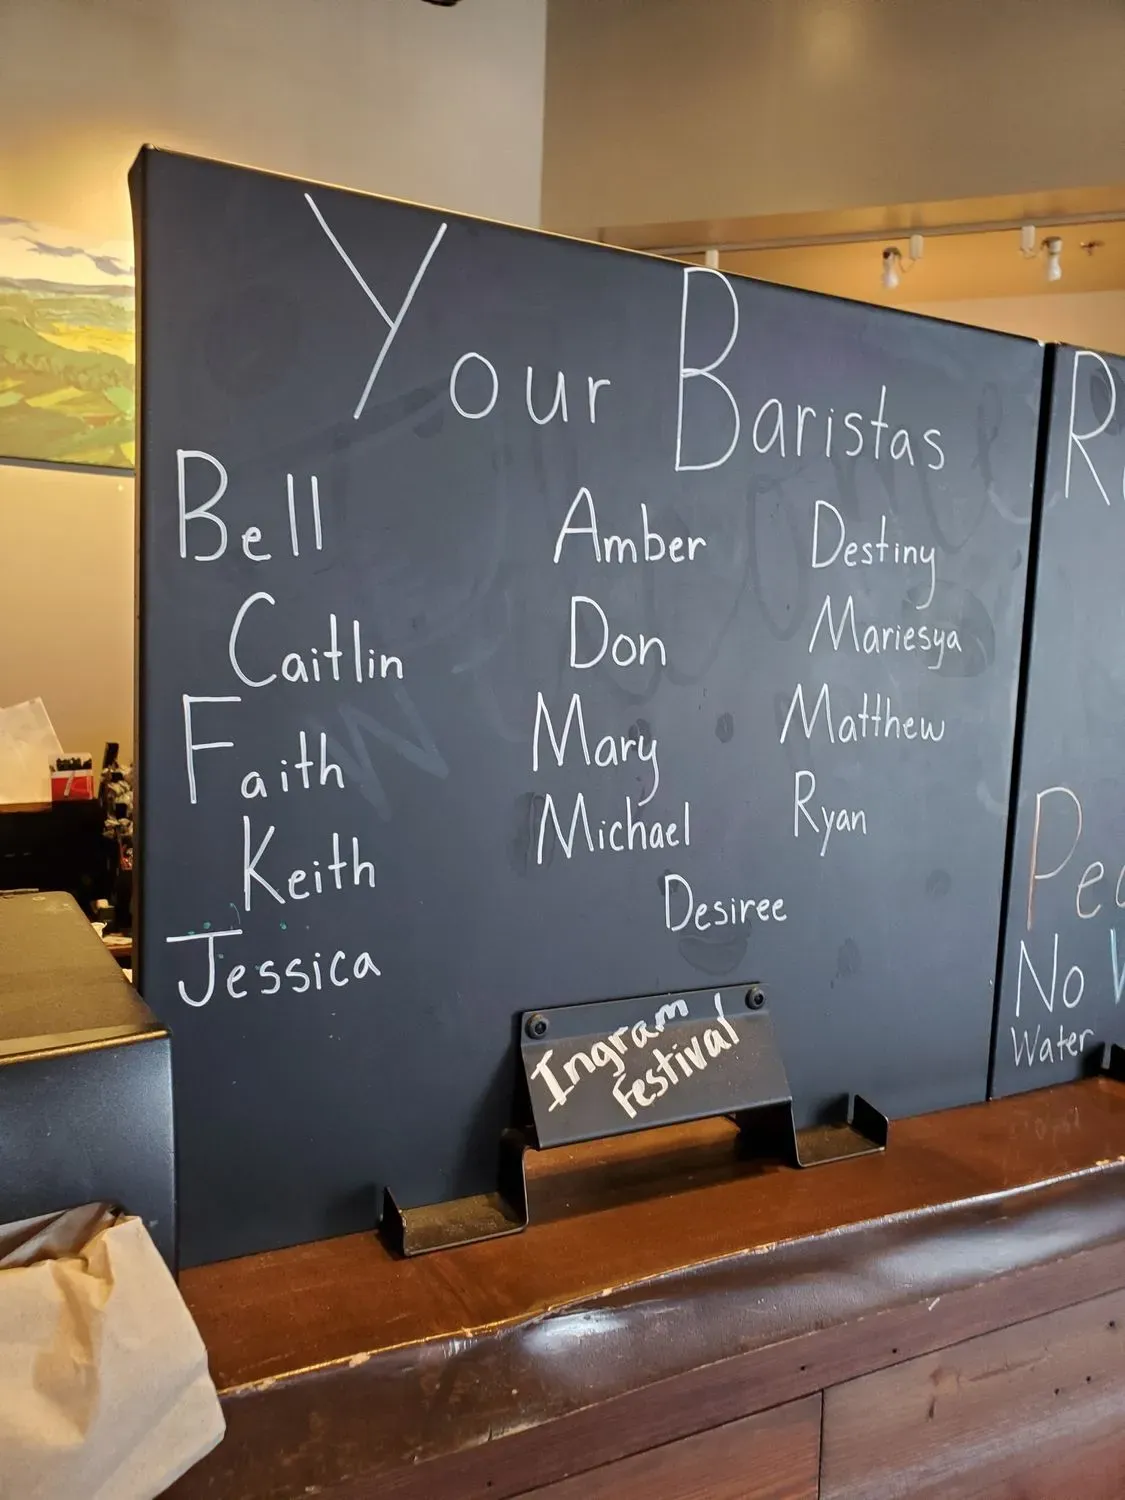 Your Baristas
Bell
Caitlin
Faith
Keith
Jessica
Amber
Don
Mary
Michael
Desiree
Destiny
Mariesya
Matthew
Ryan
Ingram
Festival
No
Water